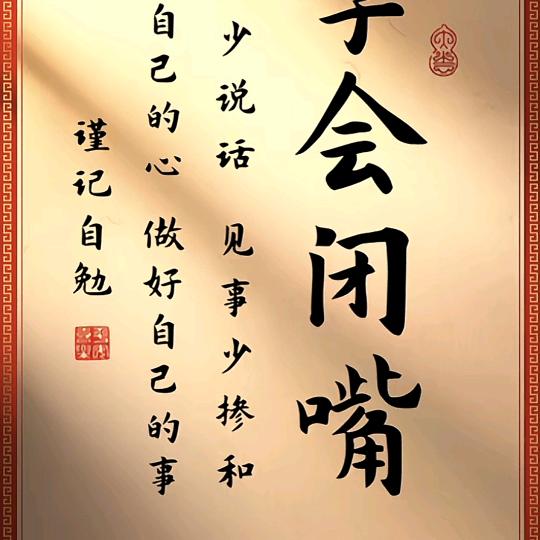 学会闭嘴
少说话 见事少掺和
自己的心 做好自己的事
谨记自勉